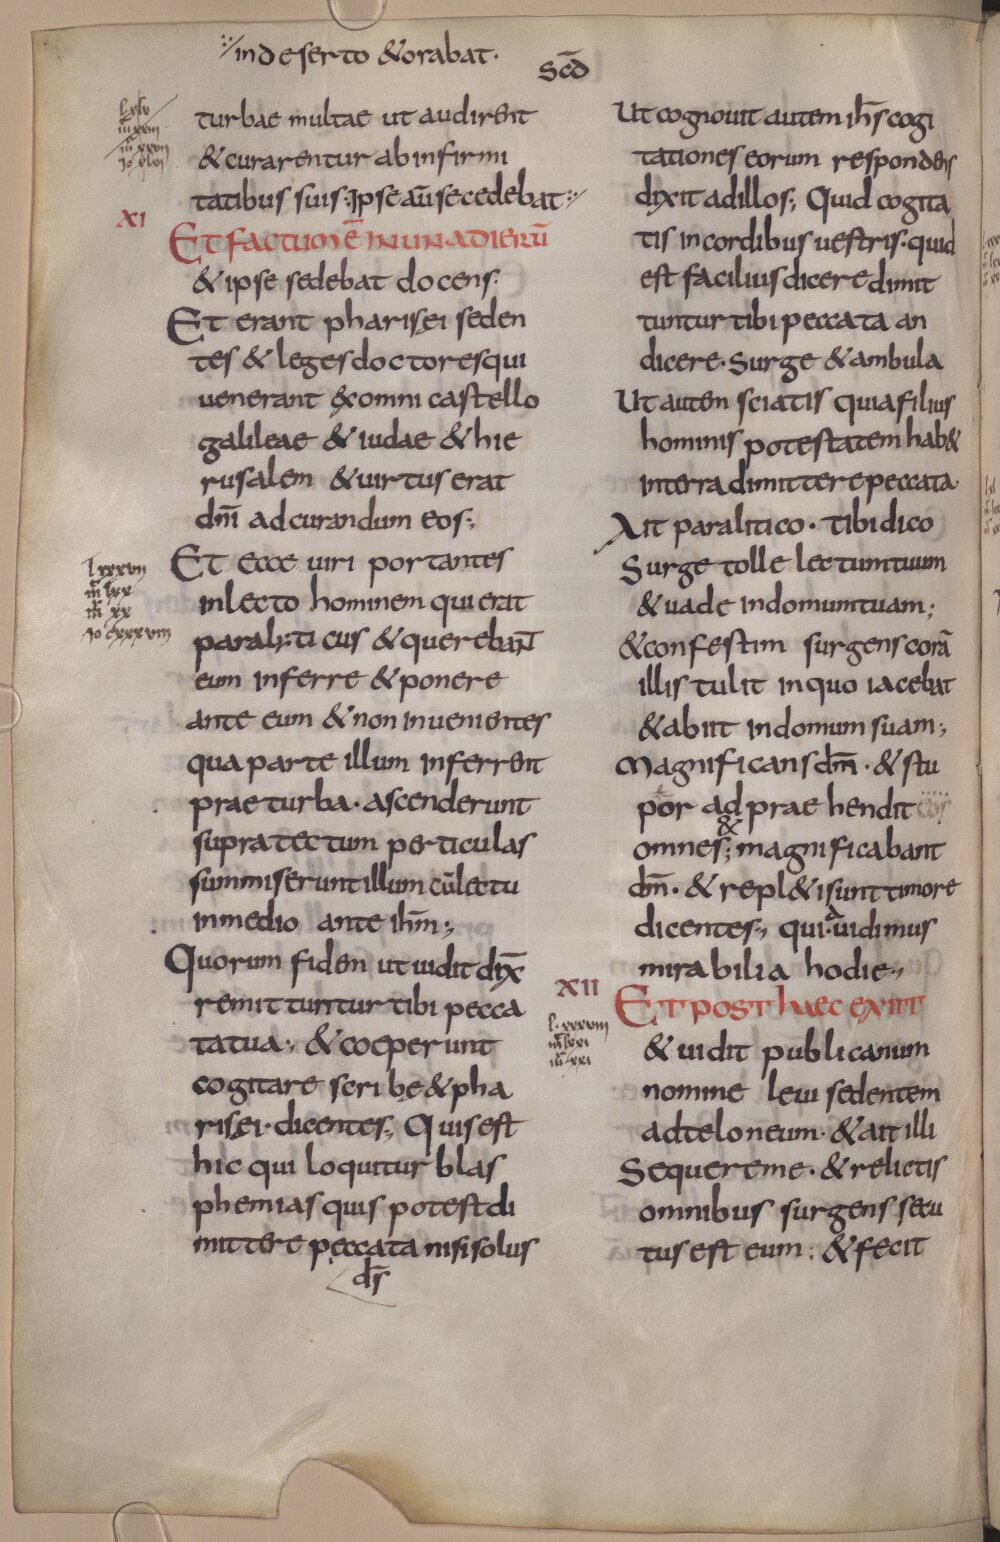 ·/·in deserto & orabat·
Scd̄
lxlv
m̄ xviii
m̄ xxvii
Io xlvi
turbae multae ut audirent
& curarentur ab infirmi
tatibus suis; Ipse aū secedebat·/·
XI
Et factum ē in una dierū
& ipse sedebat docens·
Et erant pharisęi seden
tes & leges doctores qui
venerant ex omni castello
galileae & iudae & hie
rusalem & uirtus erat
dn̄i ad curandum eos;
lxxxvii
m̄ lxx
m̄ xx
Io cxxxviii
Et ecce uiri portantes
in lecto hominem qui erat
paraliticus & querebant
eum inferre & ponere
ante eum & non inuenientes
qua parte illum inferrent
prae turba· ascenderunt
supra tectum per ticulas
summiserunt illum cū lectu
in medio ante ih̄m;
Quorum fidem ut uidit dix̄
remittuntur tibi pecca
ta tua; & coeperunt
cogitare scribę & pha
risęi· dicentes; Quis est
hic qui loquitur blas
phemias quis potest di
mittere peccata nisi solus
ds̄
Ut cognouit autem ih̄s cogi
tationes eorum respondens
dixit ad illos; Quid cogita
tis in cordibus uestris· quid
est facilius dicere dimit
tuntur tibi peccata an
dicere· Surge & ambula
Ut autem sciatis quia filius
hominis potestatem hab&
in terra dimittere peccata·
Ait paralitico· tibi dico
Surge tolle lectum tuum
& uade in domum tuam;
& confestim surgens corā
illis tulit in quo iacebat
& abiit in domum suam;
Magnificans dm̄· & stu
por adpraehendit eos
omnes; & magnificabant
dm̄· & repl&i sunt timore
dicentes; quia uidimus
mirabilia hodie;
XII
Et post haec exiit
l·xxxviii
m̄ lxxi
m̄ xxi
& uidit publicanum
nomine leui sedentem
ad teloneum· & ait illi
Sequere me· & relictis
omnibus surgens secu
tus est eum: & fecit